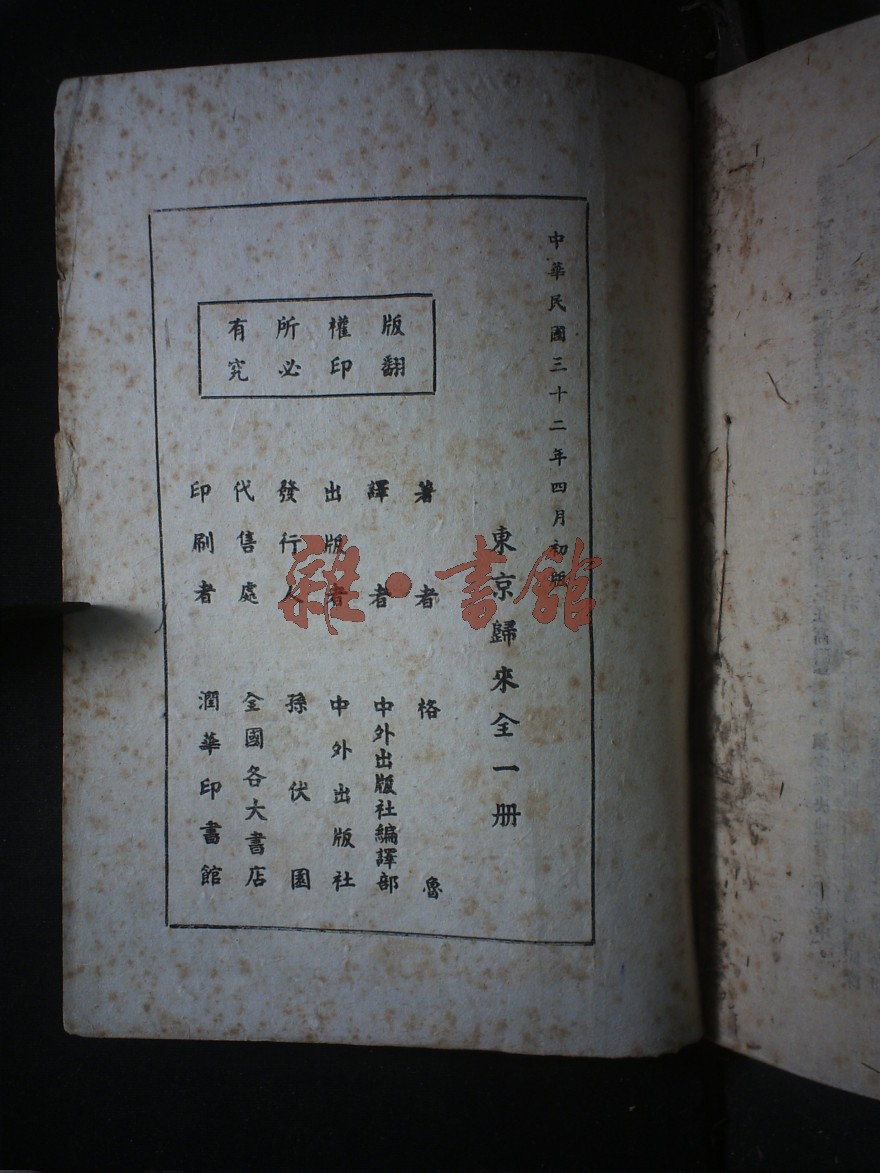 中華民國三十二年四月初版
東京歸來全一册
著者 格魯
譯者 中外出版社編譯部
出版者 中外出版社
發行人 孫伏園
代售處 全國各大書店
印刷者 潤華印書館
版權所有
翻印必究
雜·書館